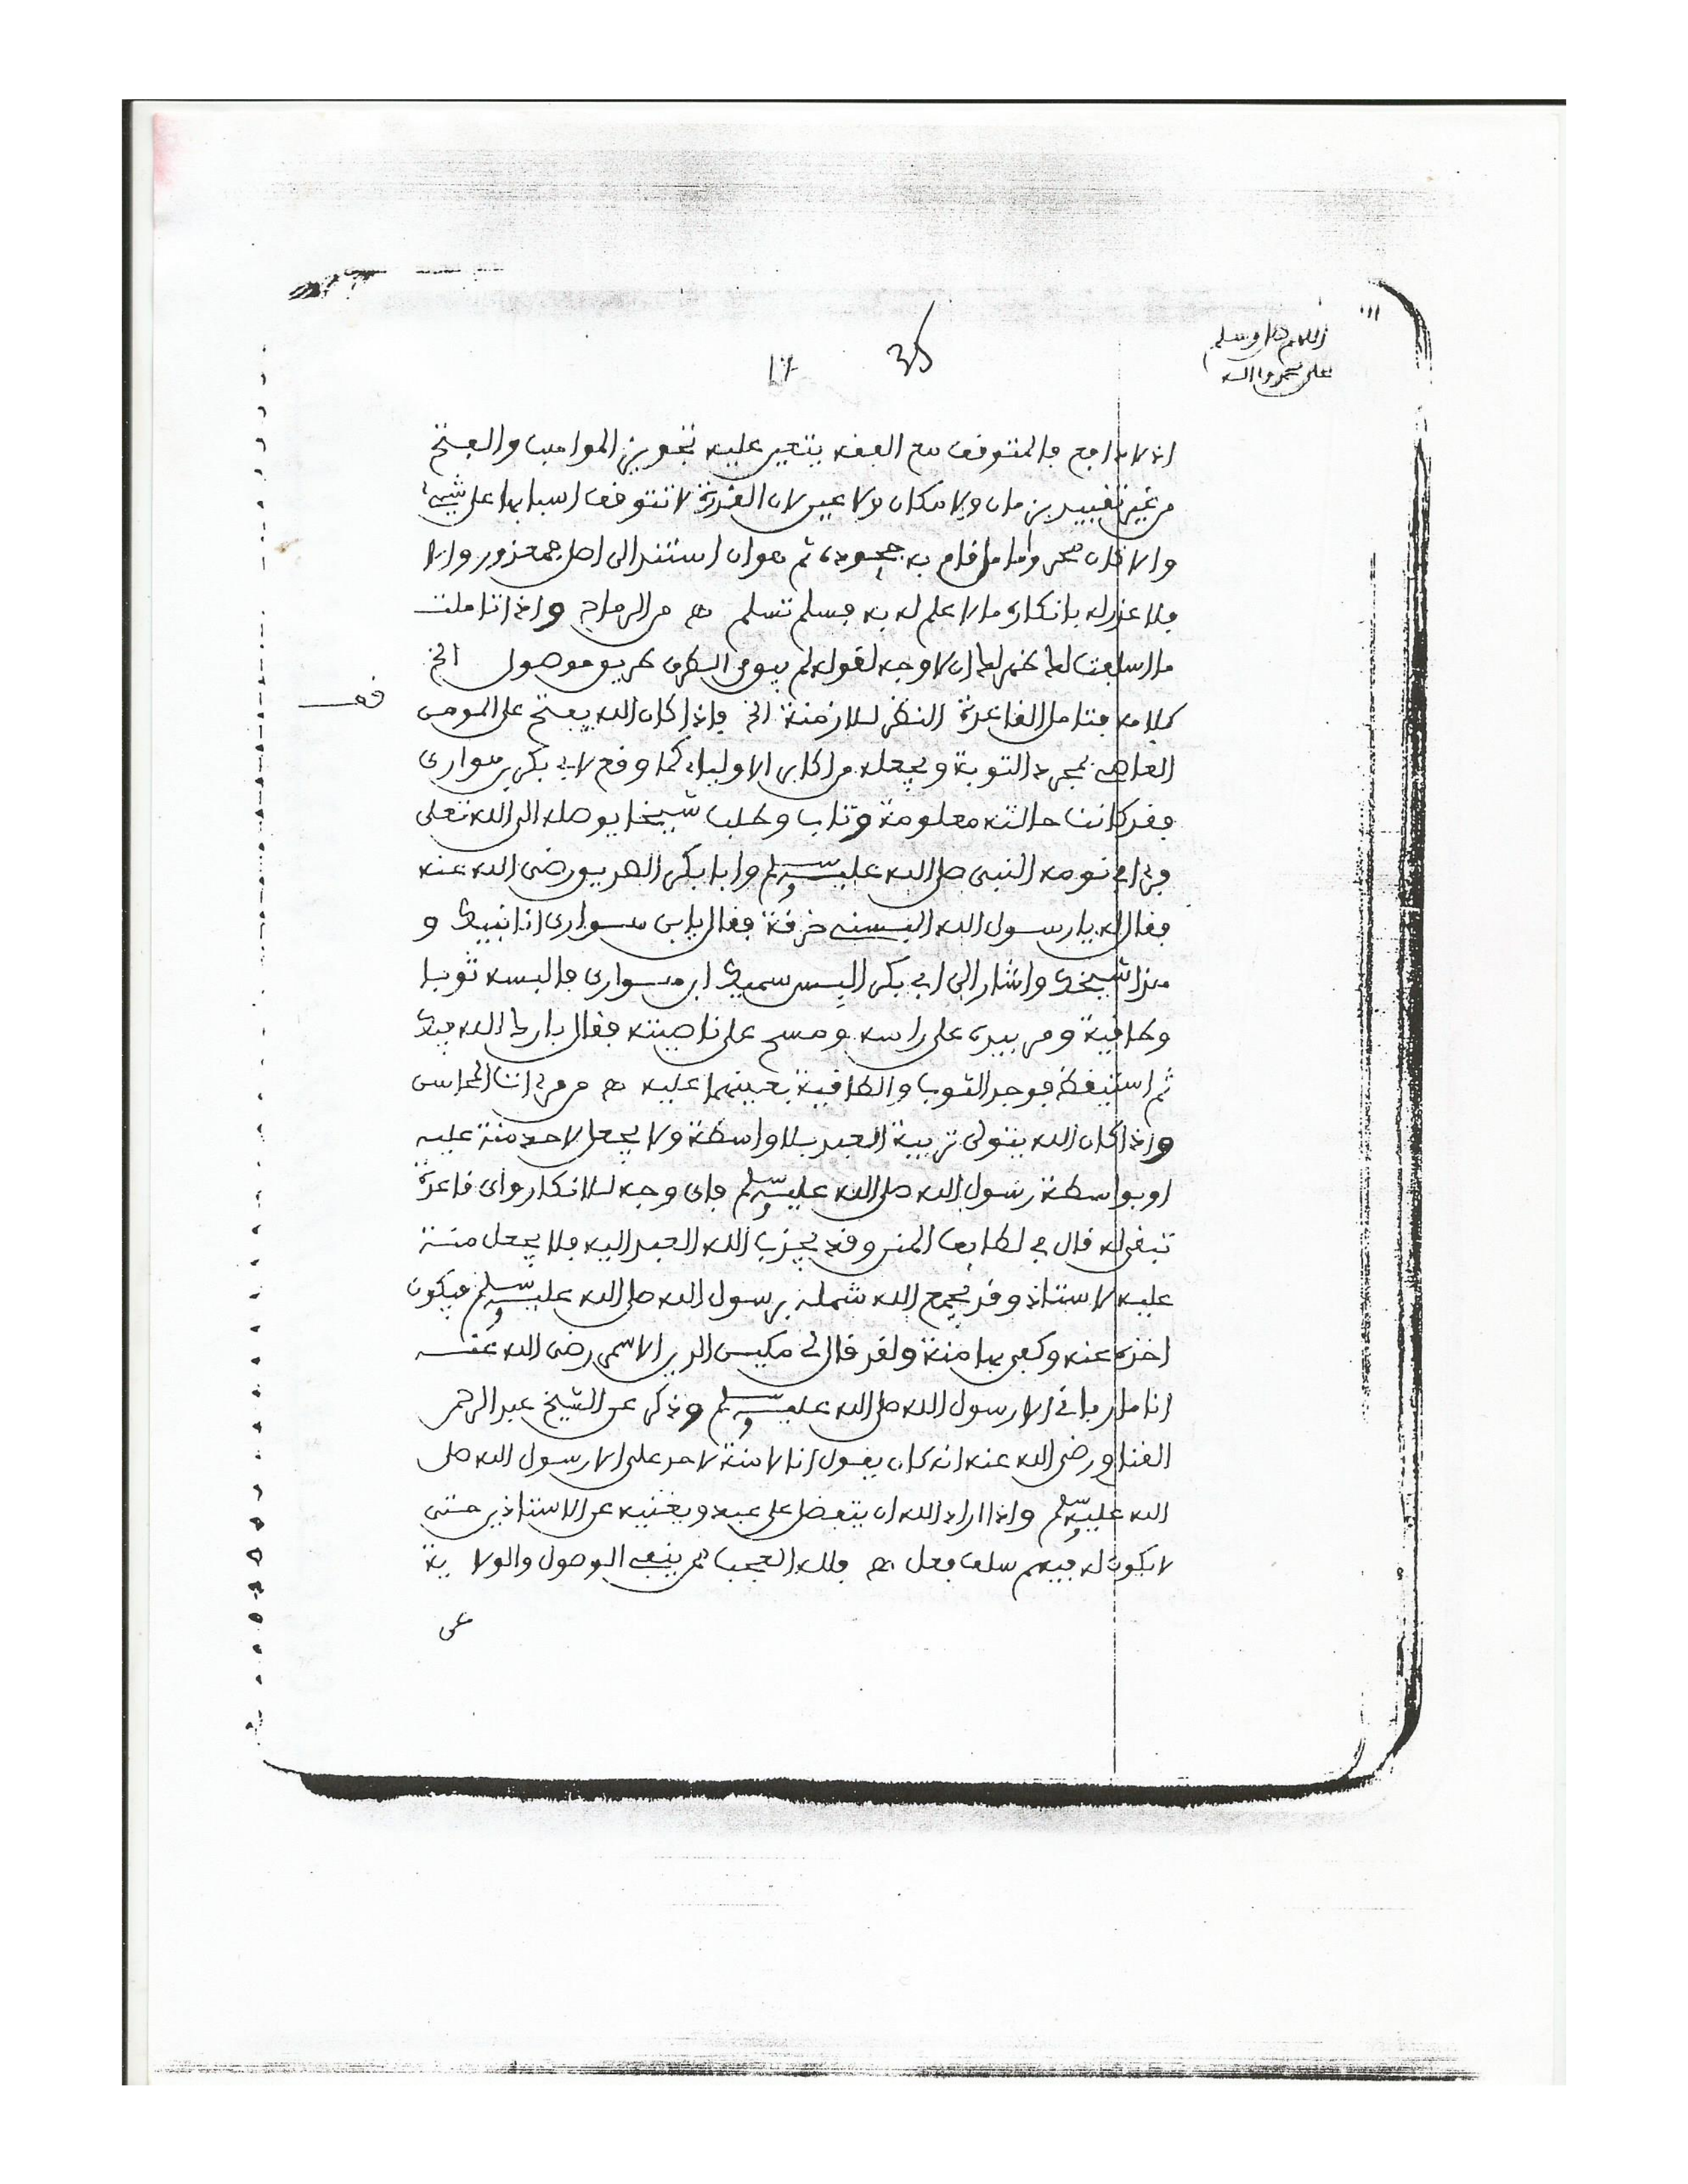 اللهم صل وسلم
على محمد وآله
35
17
اذ لا دافع فالمتوقف مع العقد يتعين عليه تجويز المواهب والفتح
من غير تقييد بزمان ولا مكان ولا عين لان القدرة لا تتوقف اسبابها على شيء
والا كان محروما ما قام به جحوده ثم هو ان استند الى اصل فمعذور والا
فلا عذر له بانكاره ما لا علم له به فسلم تسلم هـ من الرماح واذا تاملت
ما اسلفت لك ظهر لك ان لا وجه لقوله لم يبق الى الطرق طريق موصول الخ
قف
كلامه فتامل القاعدة النظر للازمنة الخ فاذا كان الله يفتح على المومن
العاصي بمجرد التوبة ويجعله من اكابر الاولياء كما وقع لابي بكر بن هوارى
فقد كانت حالته معلومة وتاب وطلب شيخا يوصله الى الله تعلى
فراى في نومه النبي صلى الله عليه وسلم وابا بكر الصديق رضى الله عنه
فقال له يا رسول الله البسنى خرقة فقال يا بن هوارى انا نبيك و
هذا شيخك واشار الى ابي بكر البس سميك ابن هوارى فالبسه ثوبا
وطاقية ومر بيده على راسه ومسح على ناصيته فقال بارك الله فيك
ثم استيقظ فوجد الثوب والطاقية بعينهما عليه هـ من مرءات المحاسن
واذا كان الله يتولى تربية العبد بلا واسطة ولا يجعل لاحد منة عليه
او بواسطة رسول الله صلى الله عليه وسلم فاي وجه للانكار واي قاعدة
تبقى له قال في لطايف المنن وقد يجذب الله العبد اليه فلا يجعل منة
عليه لاستاذ وقد يجمع الله شمله برسول الله صلى الله عليه وسلم فيكون
اخذه عنه وكفى بها منة ولقد قال لي مكين الدين الاسمر رضى الله عنه
انا ما رباني الا رسول الله صلى الله عليه وسلم وذكر عن الشيخ عبد الرحمن
القناوي رضى الله عنه انه كان يقول انا لا منة لاحد علي الا رسول الله صلى
الله عليه وسلم واذا اراد الله ان يتفضل على عبده ويغنيه عن الاستاذين حتى
لا يكون له فيهم سلف فعل هـ فلله العجب ممن ينفى الوصول والولاية
عن